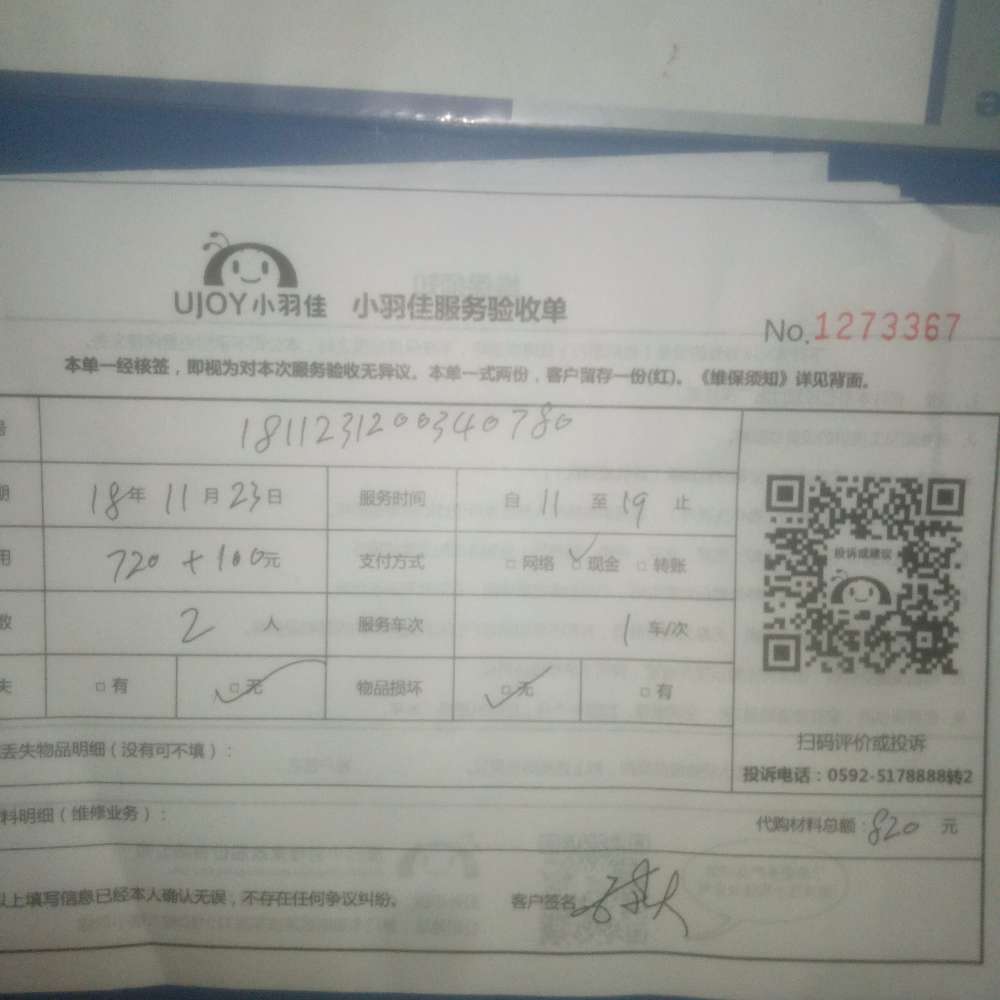 UJOY小羽佳 小羽佳服务验收单
No.1273367
本单一经核签，即视为对本次服务验收无异议。本单一式两份，客户留存一份(红)。《维保须知》详见背面。
号 1811231200340780
期 18年11月23日 服务时间 自 11 至 19 止
用 720+100元 支付方式 □网络 □现金 □转账
数 2 人 服务车次 1 车/次
失 □有 □无 物品损坏 □无 □有
投诉或建议
扫码评价或投诉
丢失物品明细（没有可不填）：
投诉电话：0592-5178888转2
料明细（维修业务）：
代购材料总额：820 元
以上填写信息已经本人确认无误，不存在任何争议纠纷。 客户签名：